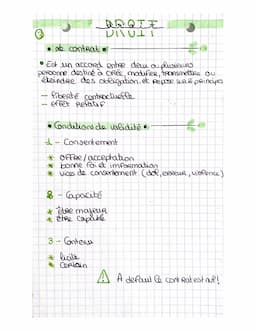 DROIT
• Le contrat •
• Est un accord entre deux ou plusieurs
personne destiné à créé, modifier, transmettre ou
éteindre des obligation, et repose sur 2 principes
- liberté contractuelle
- effet relatif
• Conditions de validité •
1 - Consentement
* offre / acceptation
* bonne foi et information
* vices de consentement (dol, erreur, violence)
2 - Capacité
* être majeur
* être capable
3 - Contenu
* licite
* certain
⚠ A défaut le contrat est nul !